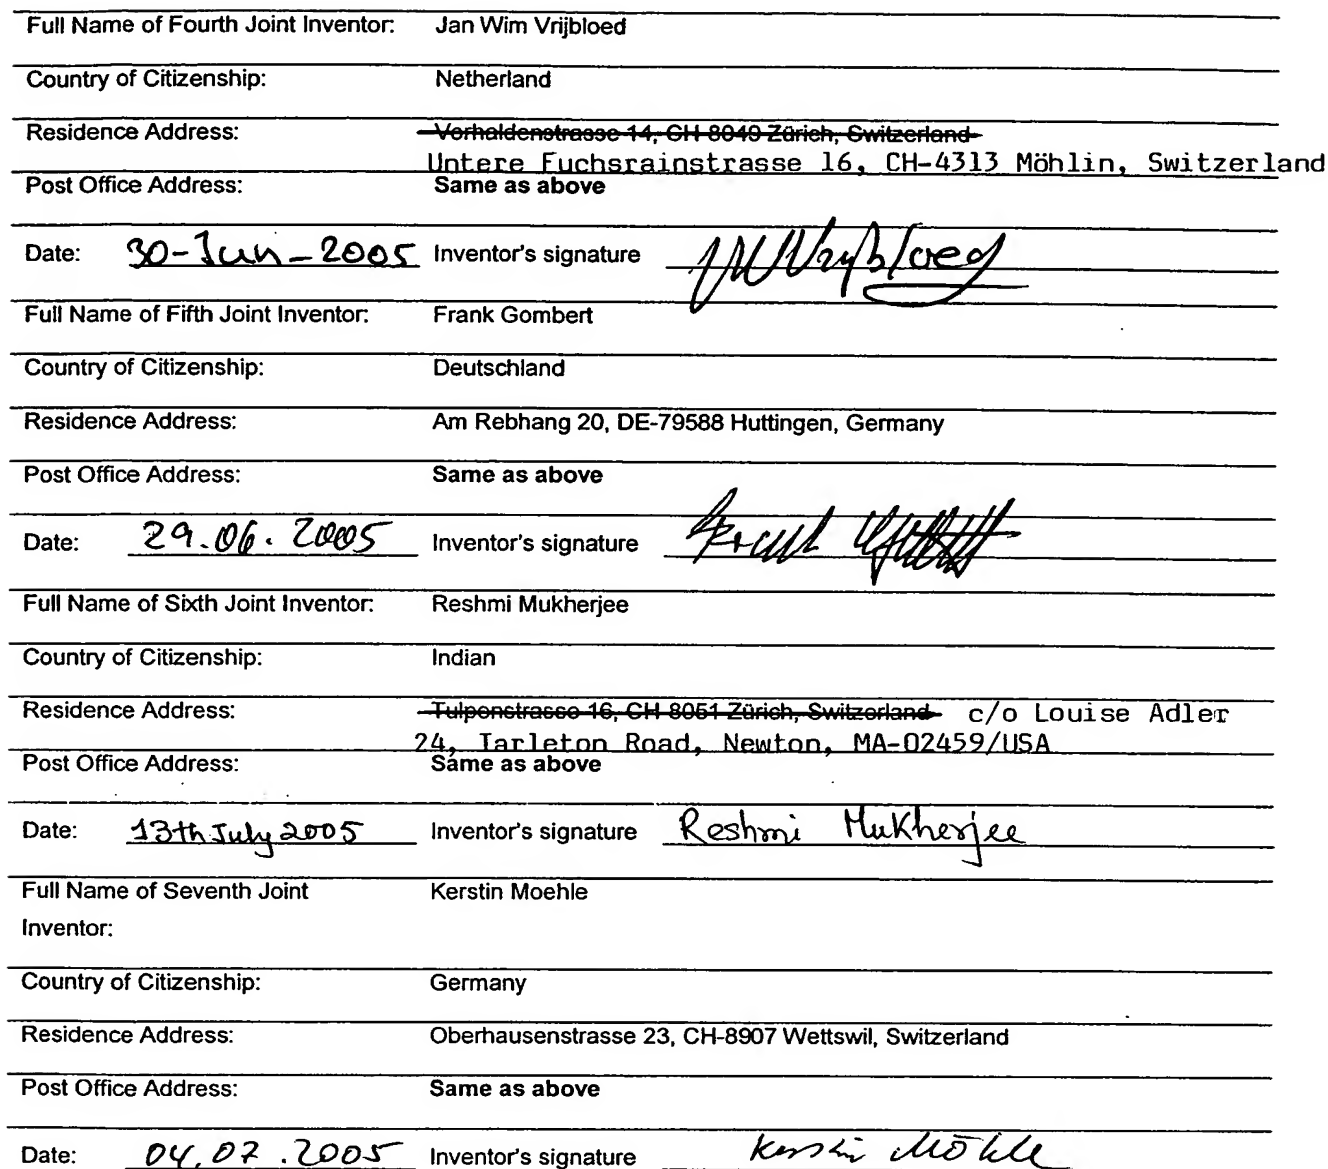 Full Name of Fourth Joint Inventor: Jan Wim Vrijbloed
Country of Citizenship: Netherland
Residence Address: Vorhaldenstrasse 14, CH-8049 Zürich, Switzerland
Untere Fuchsrainstrasse 16, CH-4313 Möhlin, Switzerland
Post Office Address: Same as above
Date: 30-Jun-2005 Inventor's signature JW Vrijbloed
Full Name of Fifth Joint Inventor: Frank Gombert
Country of Citizenship: Deutschland
Residence Address: Am Rebhang 20, DE-79588 Huttingen, Germany
Post Office Address: Same as above
Date: 29.06.2005 Inventor's signature Frank
Full Name of Sixth Joint Inventor: Reshmi Mukherjee
Country of Citizenship: Indian
Residence Address: Tulpenstrasse 16, CH 8051 Zürich, Switzerland c/o Louise Adler
24, Tarleton Road, Newton, MA-02459/USA
Post Office Address: Same as above
Date: 13th July 2005 Inventor's signature Reshmi Mukherjee
Full Name of Seventh Joint Kerstin Moehle
Inventor:
Country of Citizenship: Germany
Residence Address: Oberhausenstrasse 23, CH-8907 Wettswil, Switzerland
Post Office Address: Same as above
Date: 04.07.2005 Inventor's signature Kerstin Möhle